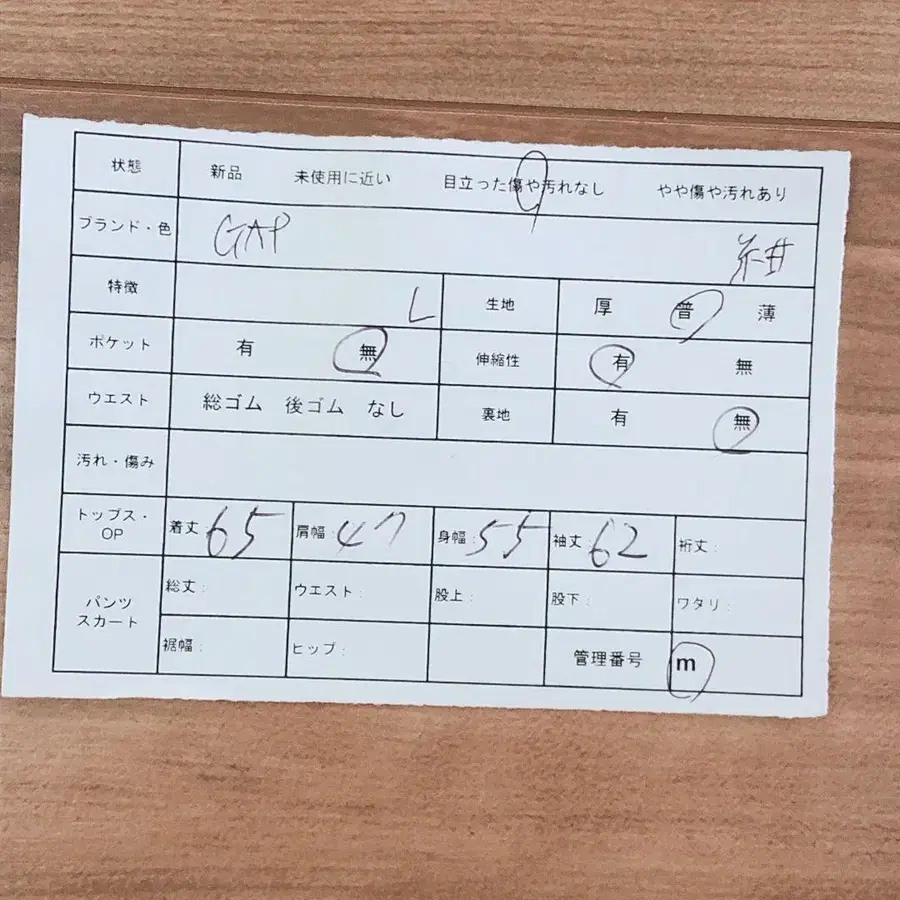 状態 新品 未使用に近い 目立った傷や汚れなし やや傷や汚れあり
ブランド・色 GAP 紺
特徴 L 生地 厚 普 薄
ポケット 有 無 伸縮性 有 無
ウエスト 総ゴム 後ゴム なし 裏地 有 無
汚れ・傷み
トップス・OP 着丈:65 肩幅:47 身幅:55 袖丈:62 裄丈:
パンツ スカート 総丈: ウエスト: 股上: 股下: ワタリ:
裾幅: ヒップ: 管理番号 m